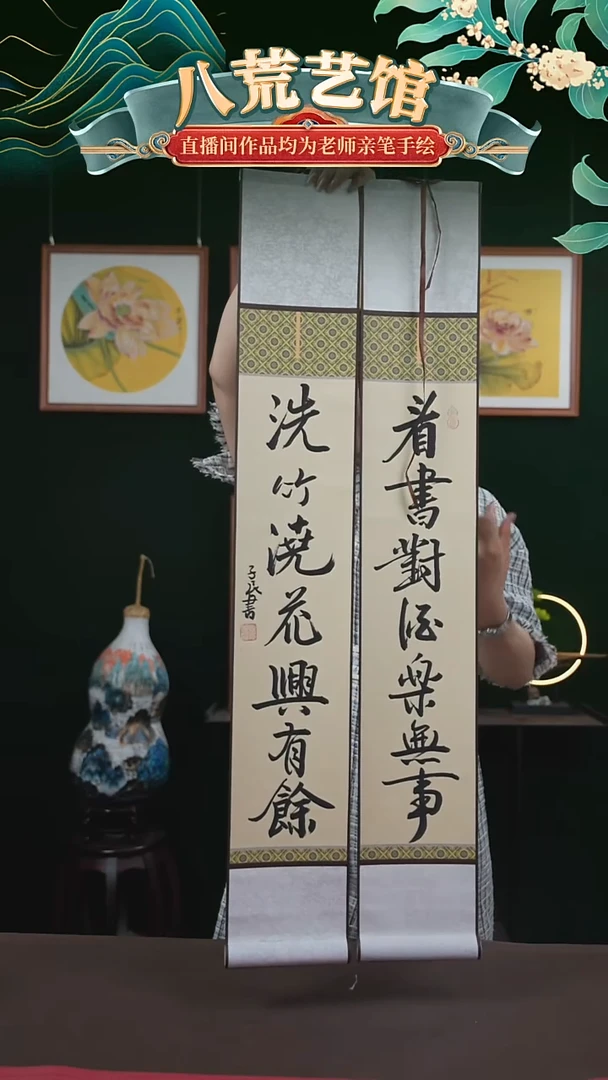 八荒艺馆
直播间作品均为老师亲笔手绘
看書對酒樂無事
洗竹澆花興有餘